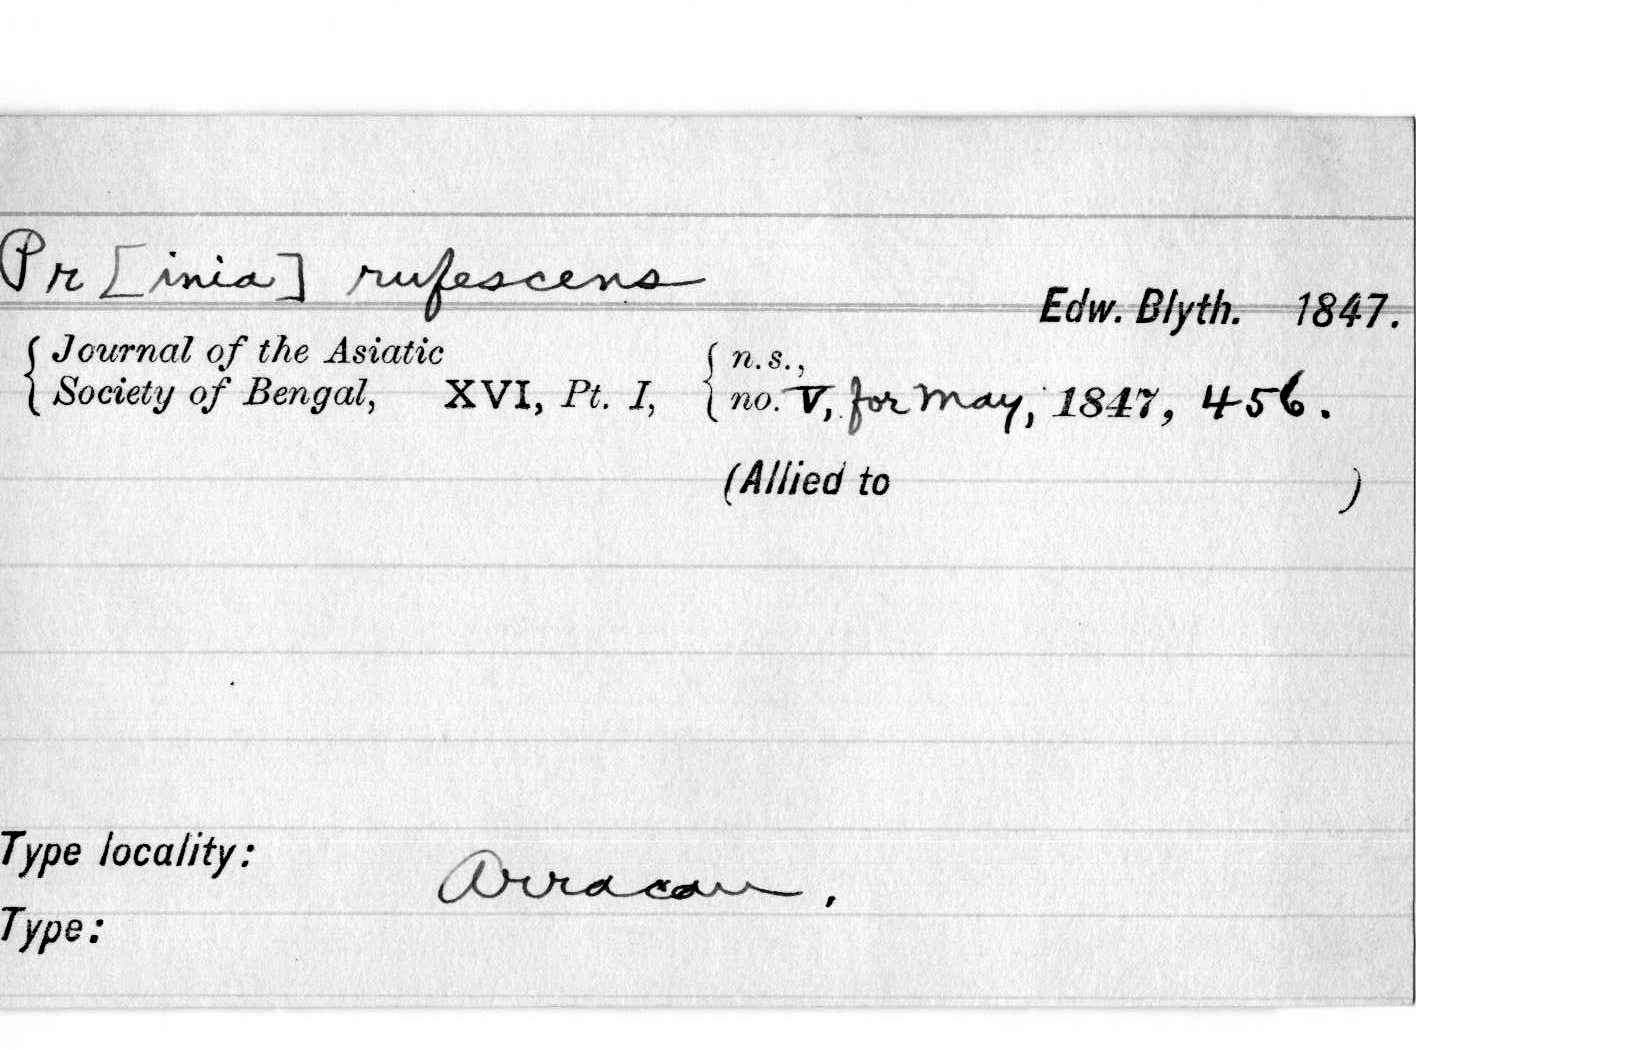 Pr [inia] rufescens
Edw. Blyth. 1847.
Journal of the Asiatic
Society of Bengal, XVI, Pt. I, n.s., no. V, for May, 1847, 456.
(Allied to )
Type locality:
Arracan.
Type: